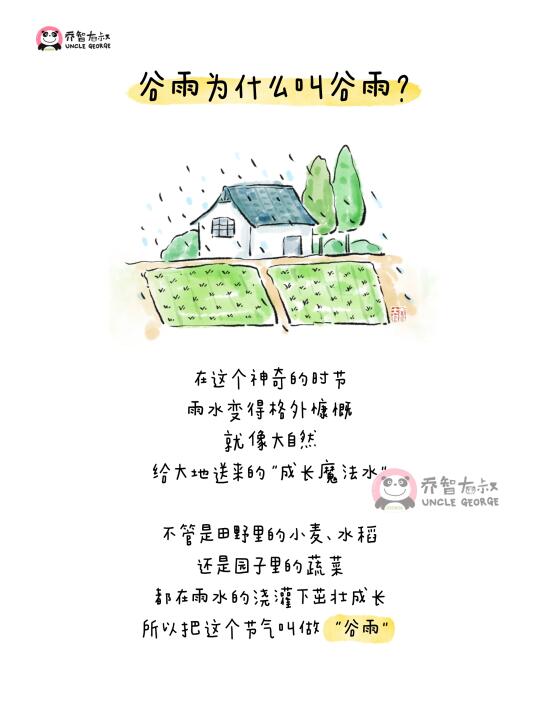 乔智大叔
UNCLE GEORGE
谷雨为什么叫谷雨？
在这个神奇的时节
雨水变得格外慷慨
就像大自然
给大地送来的“成长魔法水”
乔智大叔
UNCLE GEORGE
不管是田野里的小麦、水稻
还是园子里的蔬菜
都在雨水的浇灌下茁壮成长
所以把这个节气叫做“谷雨”